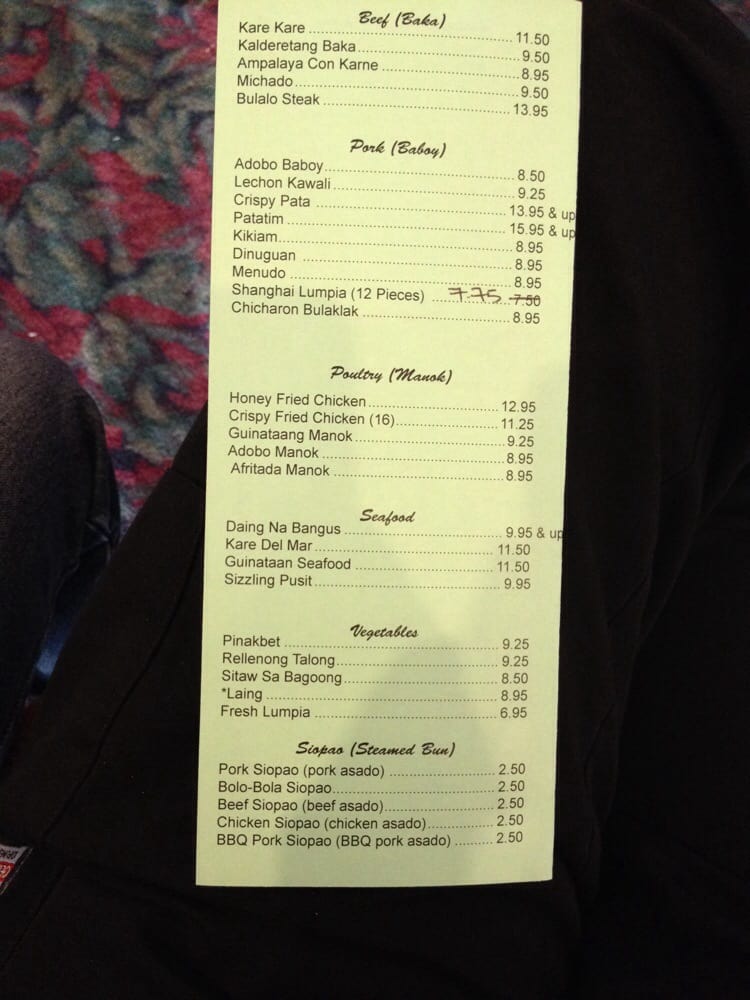 Beef (Baka)
Kare Kare ........ 11.50
Kalderetang Baka ........ 9.50
Ampalaya Con Karne ........ 8.95
Michado ........ 9.50
Bulalo Steak ........ 13.95
Pork (Baboy)
Adobo Baboy ........ 8.50
Lechon Kawali ........ 9.25
Crispy Pata ........ 13.95 & up
Patatim ........ 15.95 & up
Kikiam ........ 8.95
Dinuguan ........ 8.95
Menudo ........ 8.95
Shanghai Lumpia (12 Pieces) ........ 7.75 7.50
Chicharon Bulaklak ........ 8.95
Poultry (Manok)
Honey Fried Chicken ........ 12.95
Crispy Fried Chicken (16) ........ 11.25
Guinataang Manok ........ 9.25
Adobo Manok ........ 8.95
Afritada Manok ........ 8.95
Seafood
Daing Na Bangus ........ 9.95 & up
Kare Del Mar ........ 11.50
Guinataan Seafood ........ 11.50
Sizzling Pusit ........ 9.95
Vegetables
Pinakbet ........ 9.25
Rellenong Talong ........ 9.25
Sitaw Sa Bagoong ........ 8.50
*Laing ........ 8.95
Fresh Lumpia ........ 6.95
Siopao (Steamed Bun)
Pork Siopao (pork asado) ........ 2.50
Bolo-Bola Siopao ........ 2.50
Beef Siopao (beef asado) ........ 2.50
Chicken Siopao (chicken asado) ........ 2.50
BBQ Pork Siopao (BBQ pork asado) ........ 2.50